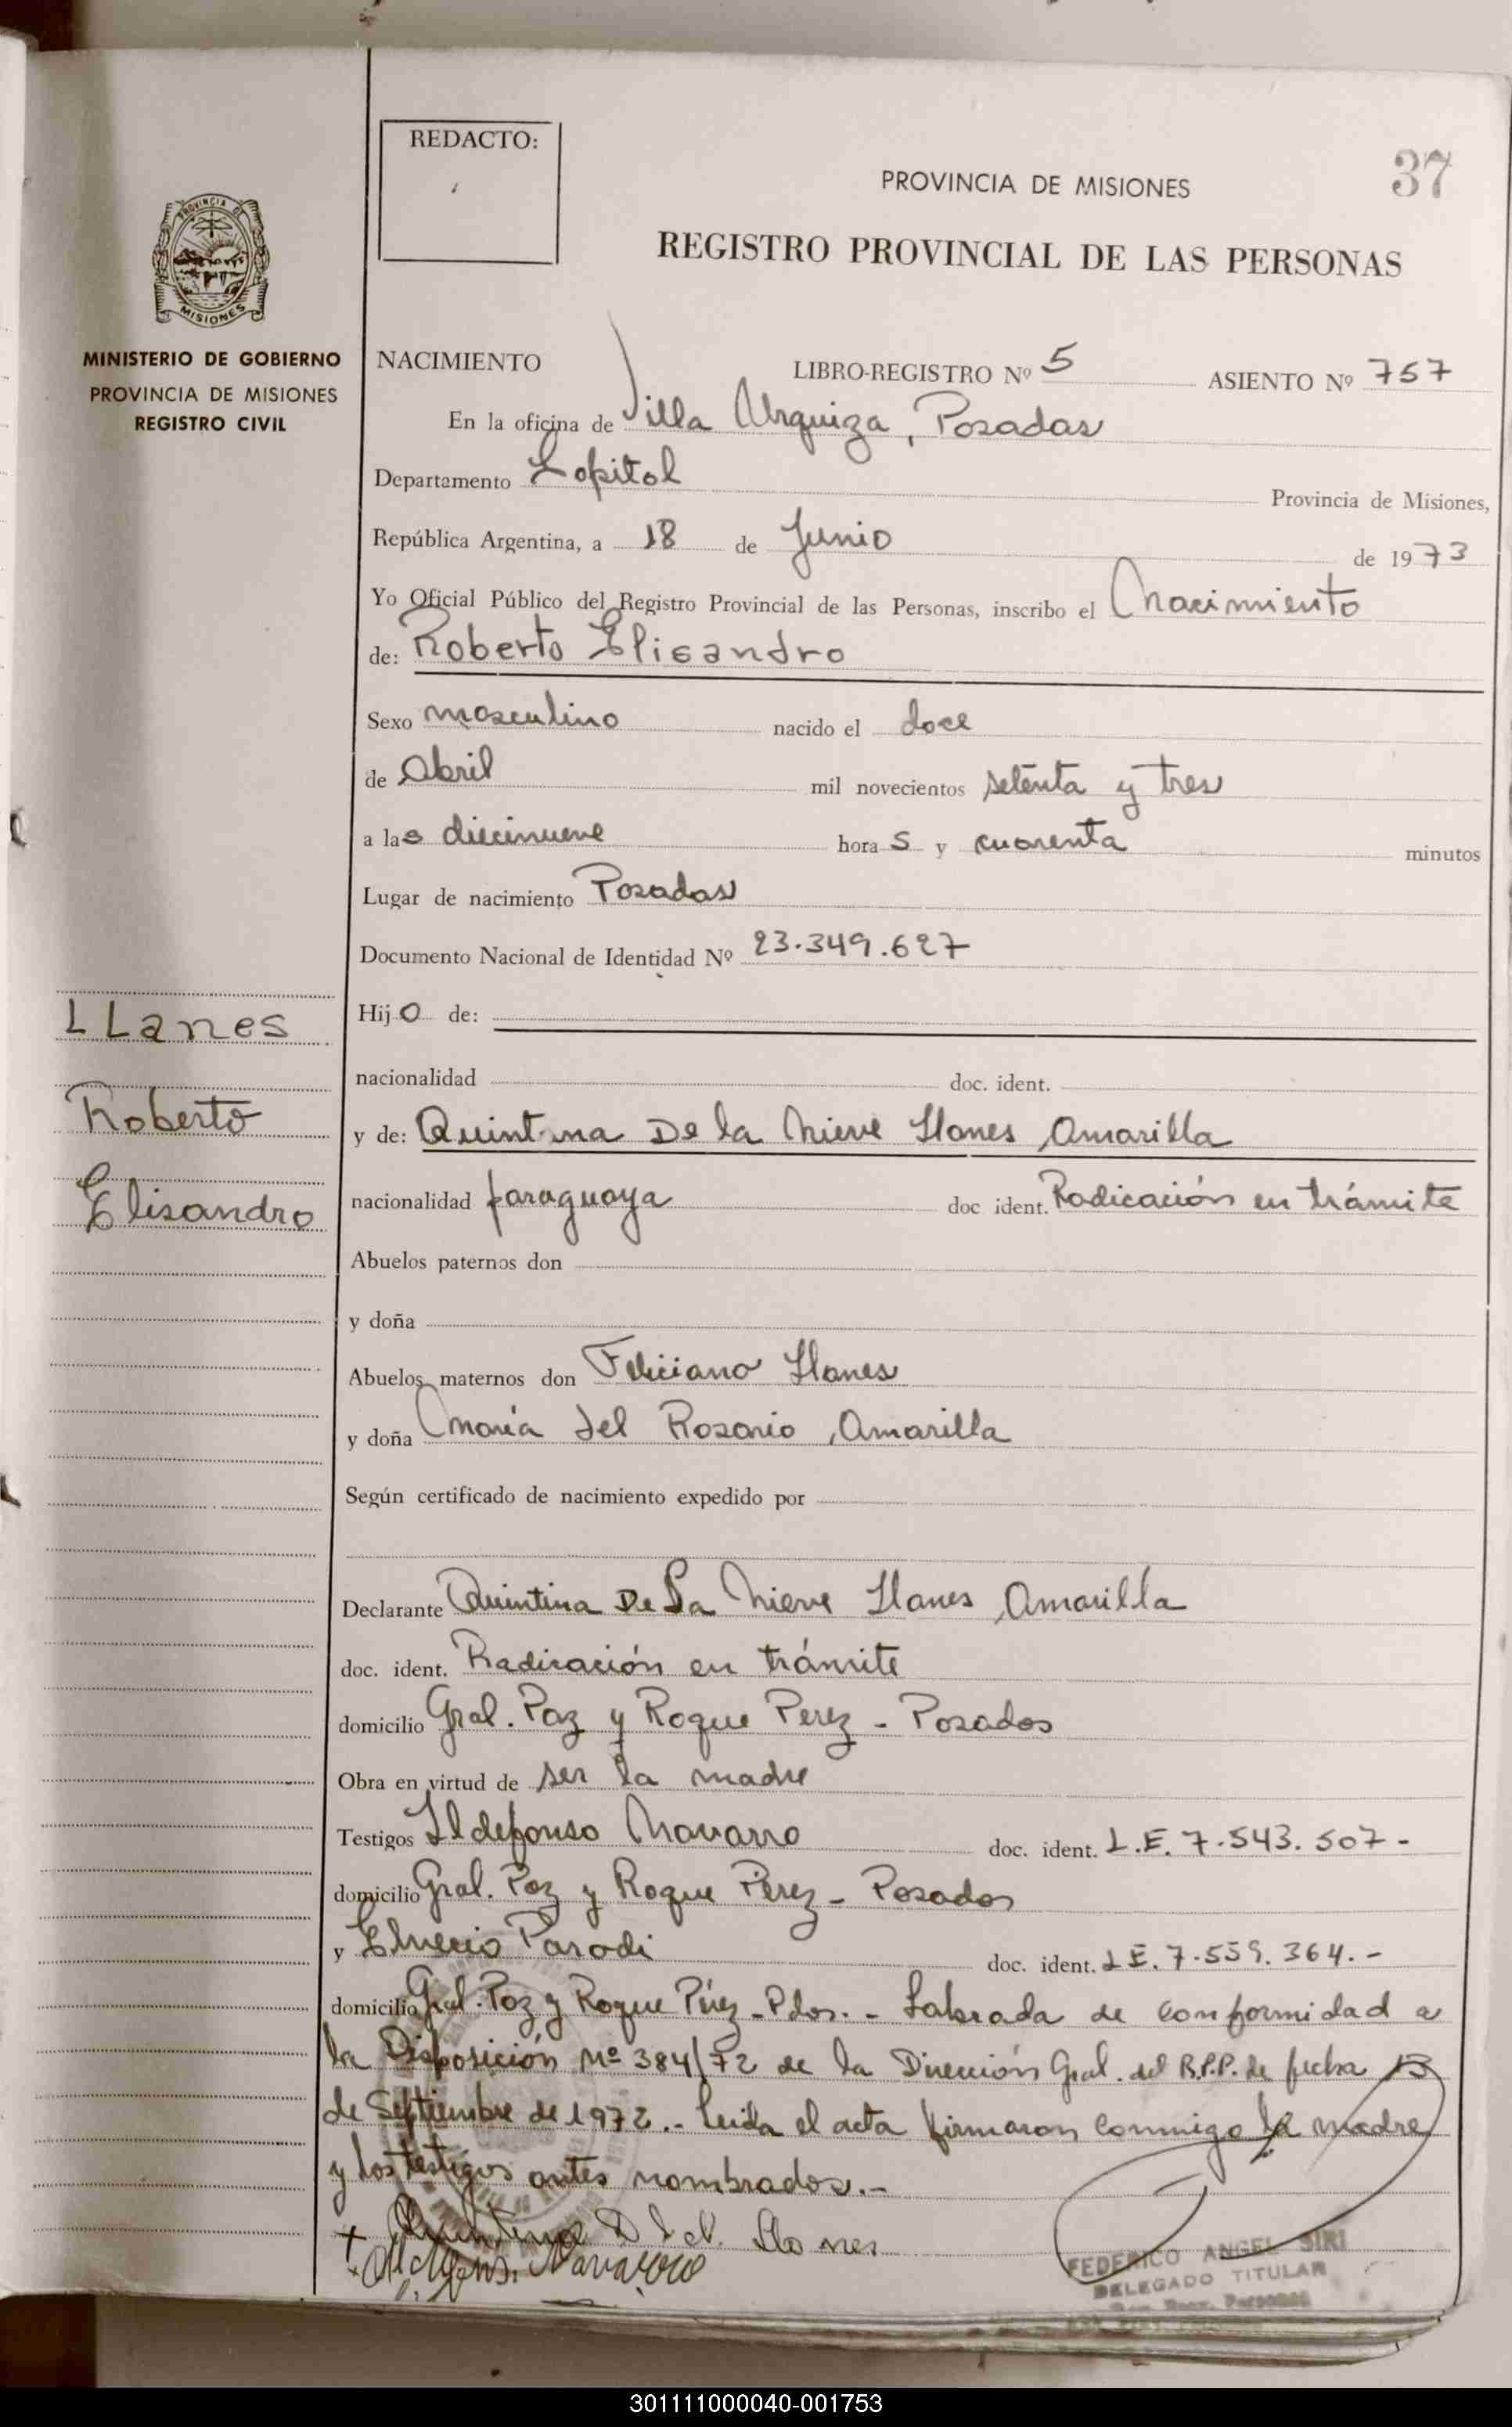 REDACTO:
PROVINCIA DE MISIONES
37
REGISTRO PROVINCIAL DE LAS PERSONAS
PROVINCIA DE
MISIONES
MINISTERIO DE GOBIERNO
PROVINCIA DE MISIONES
REGISTRO CIVIL
NACIMIENTO LIBRO-REGISTRO Nº 5 ASIENTO Nº 757
En la oficina de Villa Urquiza, Posadas
Departamento Capital Provincia de Misiones,
República Argentina, a 18 de Junio de 1973
Yo Oficial Público del Registro Provincial de las Personas, inscribo el Nacimiento
de: Roberto Elisandro
Sexo masculino nacido el doce
de Abril mil novecientos setenta y tres
a las diecinueve horas y cuarenta minutos
Lugar de nacimiento Posadas
Documento Nacional de Identidad Nº 23.349.627
Hijo de:
nacionalidad doc. ident.
y de: Quintina De la Nieve Llanes Amarilla
nacionalidad paraguaya doc ident. Radicación en trámite
Abuelos paternos don
y doña
Abuelos maternos don Feliciano Llanes
y doña María del Rosario Amarilla
Según certificado de nacimiento expedido por
Declarante Quintina De La Nieve Llanes Amarilla
doc. ident. Radicación en trámite
domicilio Gral. Paz y Roque Perez - Posadas
Obra en virtud de ser la madre
Testigos Ildefonso Navarro doc. ident. L.E. 7.543.507-
domicilio Gral. Paz y Roque Pérez - Posadas
y Parodi doc. ident. L E. 7.559.364.-
domicilio Gral. Paz y Roque Pérez - Pdas. - Labrada de conformidad a
la Disposición Nº 384/72 de la Dirección Gral. del R.P.P. de fecha 13
de Septiembre de 1972.- Leida el acta firmaron conmigo la madre
y los testigos antes nombrados.-
+ Quintina D l N. Llanes
Navarro
FEDERICO ANGEL SIRI
DELEGADO TITULAR
LLanes
Roberto
Elisandro
301111000040-001753